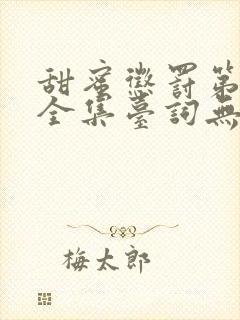 甜蜜懲罰第
全集臺詞無
梅太郎